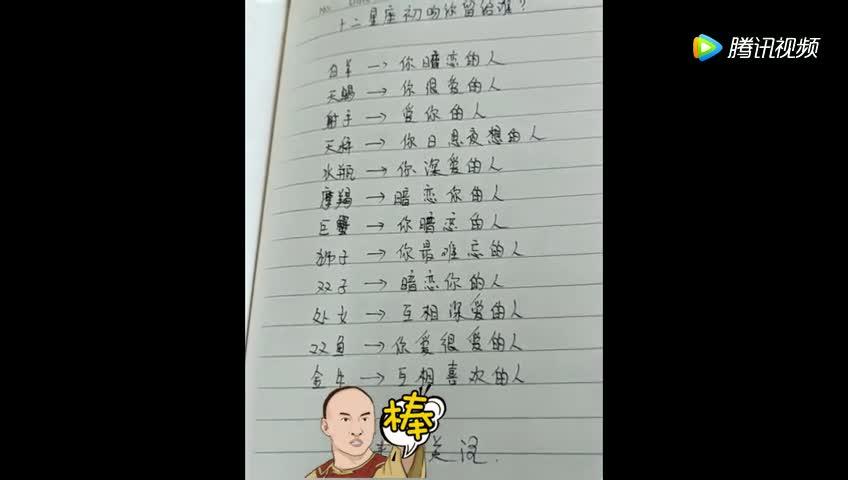 十二星座初吻你留给谁?
腾讯视频
白羊→你暗恋的人
天蝎→你很爱的人
射手→爱你的人
天秤→你日思夜想的人
水瓶→你深爱的人
摩羯→暗恋你的人
巨蟹→你暗恋的人
狮子→你最难忘的人
双子→暗恋你的人
处女→互相深爱的人
双鱼→你爱很爱的人
金牛→互相喜欢的人
棒